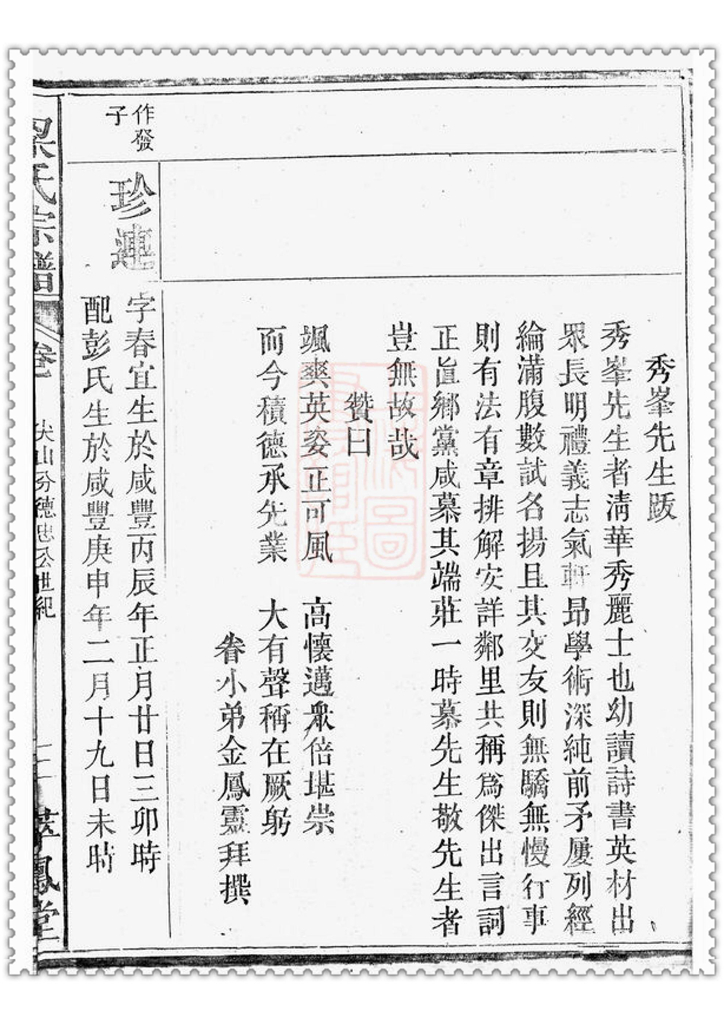 秀峯先生跋
秀峯先生者淸華秀麗士也幼讀詩書英材出
眾長明禮義志氣軒昂學術深純前矛屢列經
綸滿腹數試名揚且其交友則無驕無慢行事
則有法有章排解安詳鄰里共稱爲傑出言詞
正直鄉黨咸慕其端莊一時慕先生敬先生者
豈無故哉
贊曰
颯爽英姿正可風 高懷邁衆倍堪崇
而今積德承先業 大有聲稱在厥躬
眷小弟金鳳靈拜撰
作發子
珍連
字春宜生於咸豐丙辰年正月廿日三卯時
配彭氏生於咸豐庚申年二月十九日未時
氏宗譜 卷 尖山分德忠公世紀 鳳堂